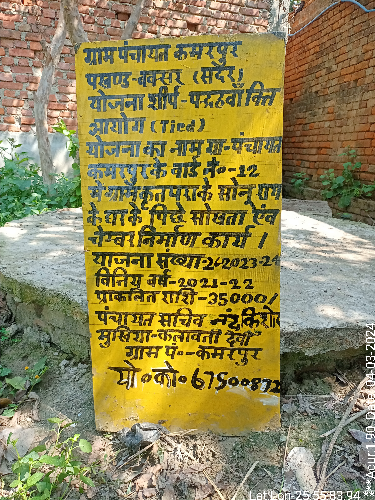 ग्राम पंचायत कमरपुर
प्रखण्ड-बक्सर (सदर)
योजना शीर्ष-पन्द्रहवाँ वित्त
आयोग (Tied)
योजना का नाम ग्रा-पंचायत
कमरपुर के वार्ड नं०-12
में ग्राम कृतपुरा के सोनू
के घर के पिछे सोखता एंव
चेम्बर निर्माण कार्य ।
योजना संख्या-2/2023-24
वित्तिय वर्ष-2021-22
प्राकलित राशि-35000/
पंचायत सचिव-नंद किशोर
मुखिया-कलावती देवी
ग्राम पं०-कमरपुर
यो०को०67500872